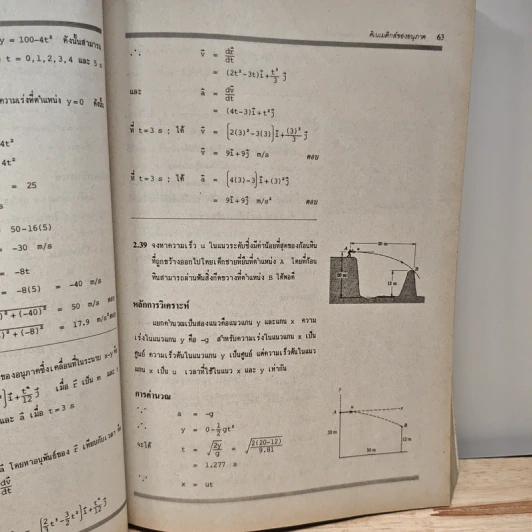 y = 100-4t² ดังนั้นสามารถ
t = 0,1,2,3,4 และ 5 s
ความเร่งที่ตำแหน่ง y=0 ดังนั้น
4t²
4t²
= 25
50-16(5)
= -30 m/s
= -8t
= -8(5) = -40 m/s
)²+(-40)² = 50 m/s ตอบ
)²+(-8)² = 17.9 m/s² ตอบ
ของอนุภาคซึ่งเคลื่อนที่ในระนาบ x-y
เมื่อ r⃗ เป็น m และ
และ a⃗ เมื่อ t=3 s
a⃗ โดยหาอนุพันธ์ของ r⃗ เทียบกับเวลา
dv⃗
dt
คิเนเมติกส์ของอนุภาค 63
∴ v⃗ = dr⃗/dt
= (2t²-3t)i⃗+t³/3 j⃗
และ a⃗ = dv⃗/dt
= (4t-3)i⃗+t²j⃗
ที่ t=3 s ; ได้ v⃗ = [2(3)²-3(3)]i⃗+(3)³/3 j⃗
v⃗ = 9i⃗+9j⃗ m/s ตอบ
ที่ t=3 s ; ได้ a⃗ = [4(3)-3]i⃗+(3)²j⃗
= 9i⃗+9j⃗ m/s² ตอบ
2.39 จงหาความเร็ว u ในแนวระดับซึ่งมีค่าน้อยที่สุดของก้อนหิน
ที่ถูกขว้างออกไปโดยเด็กชายที่ยืนที่ตำแหน่ง A โดยที่ก้อน
หินสามารถผ่านพ้นสิ่งกีดขวางที่ตำแหน่ง B ได้พอดี
A
B
12 m
หลักการวิเคราะห์
แยกคำนวณเป็นสองแนวคือแนวแกน y และแกน x ความ
เร่งในแนวแกน y คือ -g สำหรับความเร่งในแนวแกน x เป็น
ศูนย์ ความเร็วต้นในแนวแกน y เป็นศูนย์ แต่ความเร็วต้นในแนว
แกน x เป็น u เวลาที่ใช้ในแนว x และ y เท่ากัน
การคำนวณ
∵ a = -g
∵ y = 0-1/2 gt²
จะได้ t = √(2y/g) = √(2(20-12)/9.81)
= 1.277 s
∵ x = ut
y
A
B
20 m
12 m
x